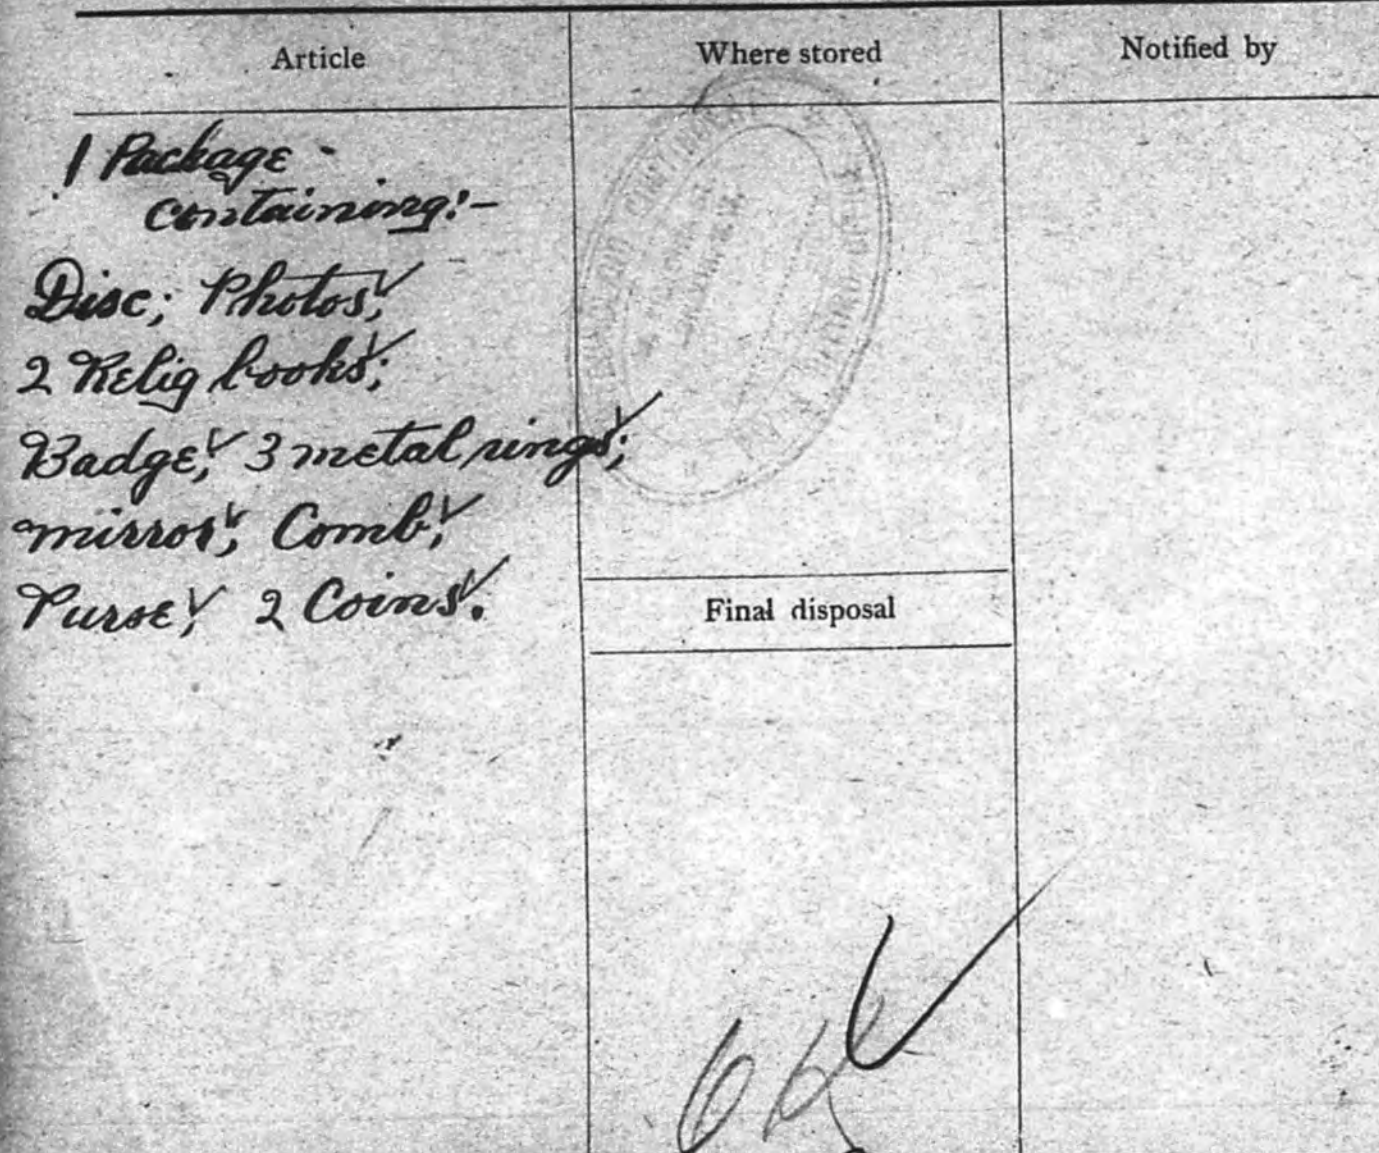 Article
Where stored
Notified by
1 Package -
containing:-
Disc; Photos;
2 Relig books;
Badge; 3 metal rings;
mirror; Comb;
Purse; 2 Coins.
Final disposal